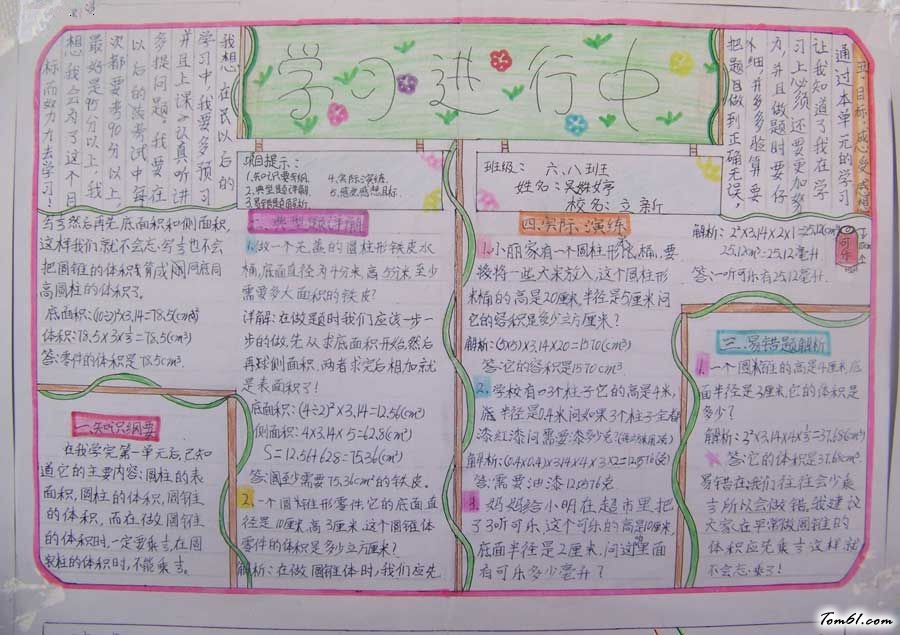 学习进行中
我想,在我以后的
学习中,我要多预习
并且上课认真听讲
多提问题,我要在
以后的法考试中每
次都要考90分以上,
最好是95分以上,我
想我会为了这个目
标而努力去学习!
五.目标,感受,感想
通过本单元的学习
让我知道了我在学
习上必须还要更加努
力,并且做题时要仔
细,并多多验算要
把题目做到正确无误,
项目提示:
1.知识要纲
2.典型题详解
3.易错题解析
4.实际演练
5.感受感想目标
班级: 六.八班
校名:立新
一.知识纲要
在我学完第一单元后,已知
道它的主要内容:圆柱的表
面积,圆柱的体积,圆锥
的体积,而在做圆锥
的体积时,一定要乘⅓,在圆
柱的体积时,不能乘⅓。
二.典型题详解
1.做一个无盖的圆柱形铁皮水
桶,底面直径为4分米高5分米至少
需要多大面积的铁皮?
详解:在做题时我们应该一步一
步的做,先从求底面积开始,然后
再球侧面积,两者求完后相加就
是表面积了!
底面积:(4÷2)²×3.14=12.56(cm²)
侧面积:4×3.14×5=62.8(cm²)
S=12.56+62.8=75.36(cm²)
答:圆至少需要75.36cm²的铁皮。
2.一个圆锥形零件,它的底面直
径是10厘米,高3厘米,这个圆锥体
零件的体积是多少立方厘米?
解析:在做圆锥体时,我们应先
写⅓然后再先底面积和侧面积,
这样我们就不会忘写⅓也不会
把圆锥的体积算成同底同
高圆柱的体积了。
底面积:(10÷2)²×3.14=78.5(cm²)
体积:78.5×3×⅓=78.5(cm³)
答:零件的体积是78.5cm³
三.易错题解析
1.一个圆锥的高是4厘米,底
面半径是3厘米,它的体积是
多少?
解析:2²×3.14×4×⅓=37.68(cm³)
答:它的体积是37.68cm³.
易错在我们往往会少乘
⅓所以会做错,我建议
大家在平常做圆锥的
体积应先乘⅓这样就
不会忘乘了!
四.实际演练
1.小丽家有一个圆柱形米桶,要
接将一些大米放入,这个圆柱形
米桶的高是20厘米,半径是5厘米问
它的容积是多少立方厘米?
解析:(5×5)×3.14×20=1570(cm³)
答:它的容积是1570cm³
2.学校有3个柱子它的高是4米,
底半径是0.4米问如果3个柱子全都
漆红漆问需要漆多少克?
答:需要油漆
3.妈妈给小明在超市里把
了3听可乐,这个可乐的高是10厘米
底面半径是2厘米,问这里面
有可乐多少毫升?
解析:2²×3.14×2×1=25.12(cm³)
25.12cm³=25.12毫升
答:一听可乐有25.12毫升.
可乐
Tom61.com